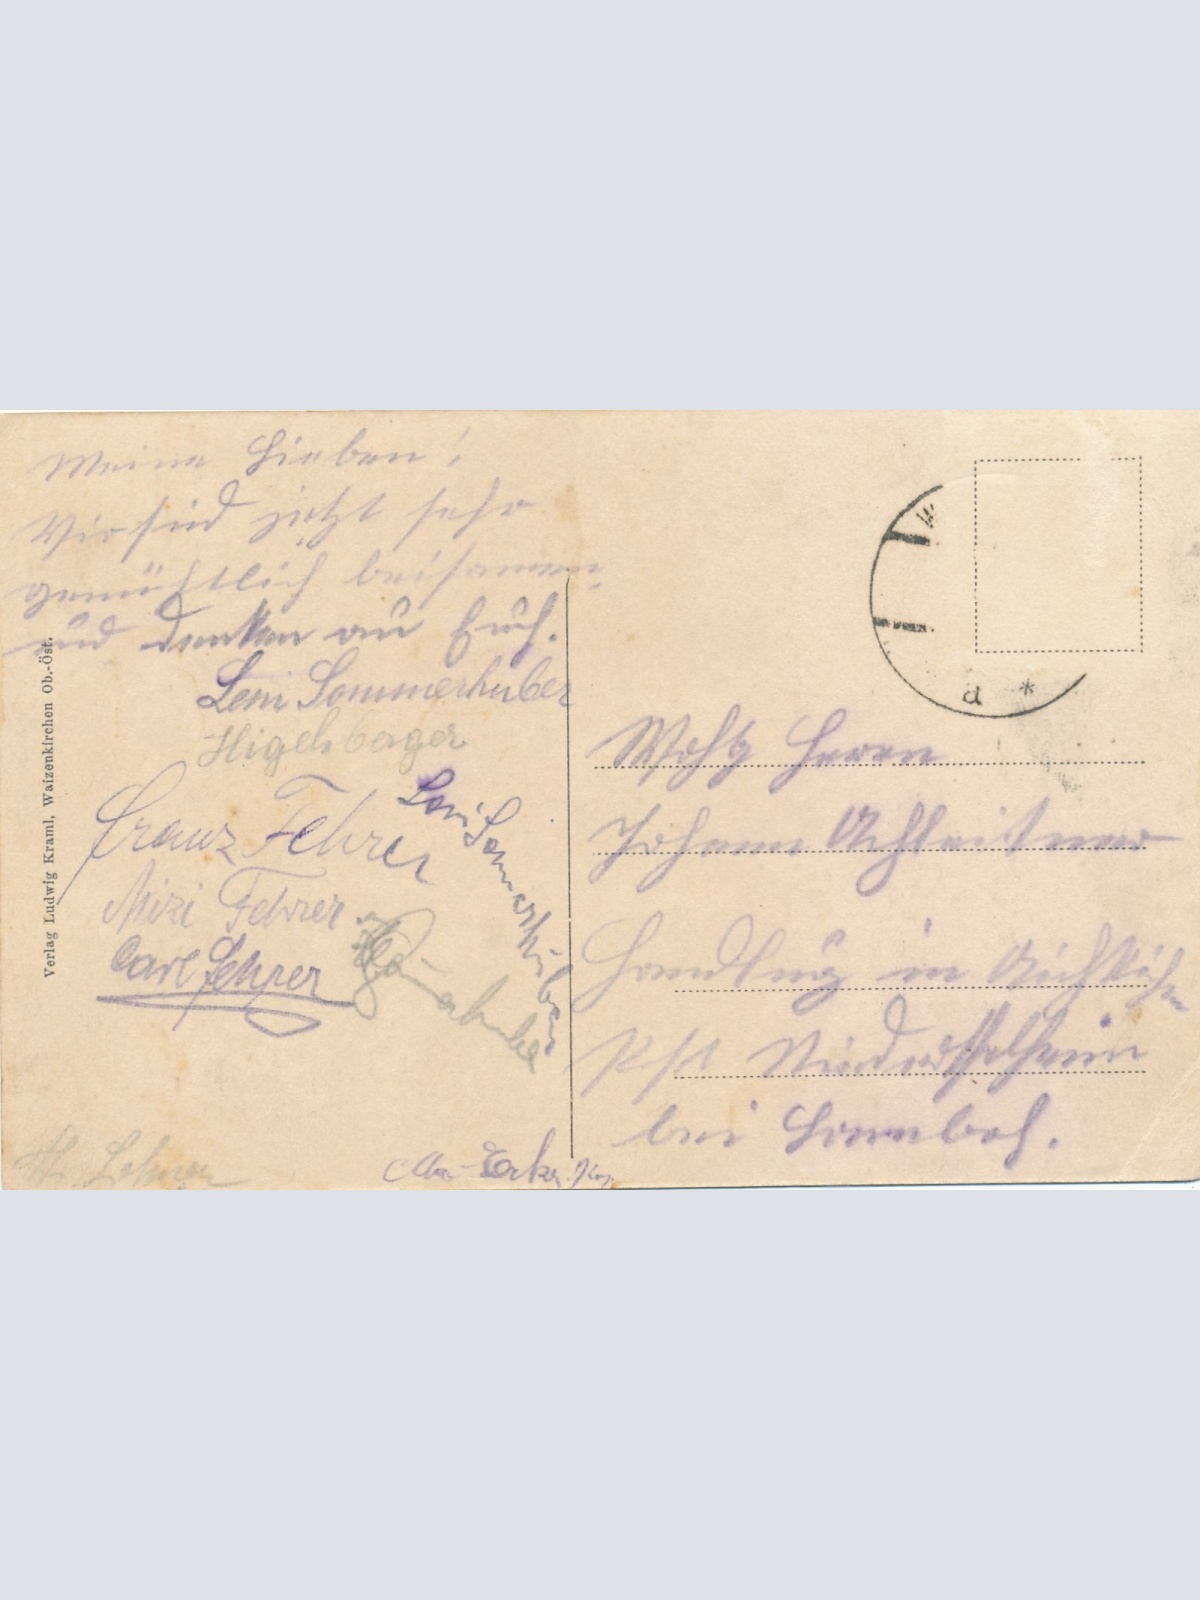 Meine Lieben!
Wir sind jetzt sehr
gemühtlich beisamen
und denken an Euch.
Leni Sommerhuber
Higelsberger
Franz Fehrer
Mizi Fehrer
Carl Fehrer
Leni Sommerhuber
Verlag Ludwig Kraml, Waizenkirchen Ob.-Öst.
W
a *
Wohlg Herrn
Johann Achleitner
Handlung in
Pst
bei Lambach.